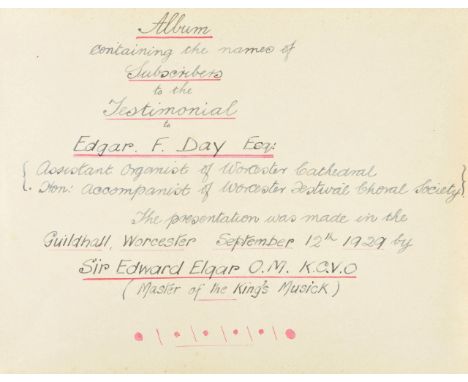 Album
containing the names of
Subscribers
to the
Testimonial
to
Edgar. F. Day Esq:
{ Assistant Organist of Worcester Cathedral
Hon: Accompanist of Worcester Festival Choral Society }
The presentation was made in the
Guildhall, Worcester September 12th 1929 by
Sir Edward Elgar O.M. K.C.V.O
( Master of the King's Musick )